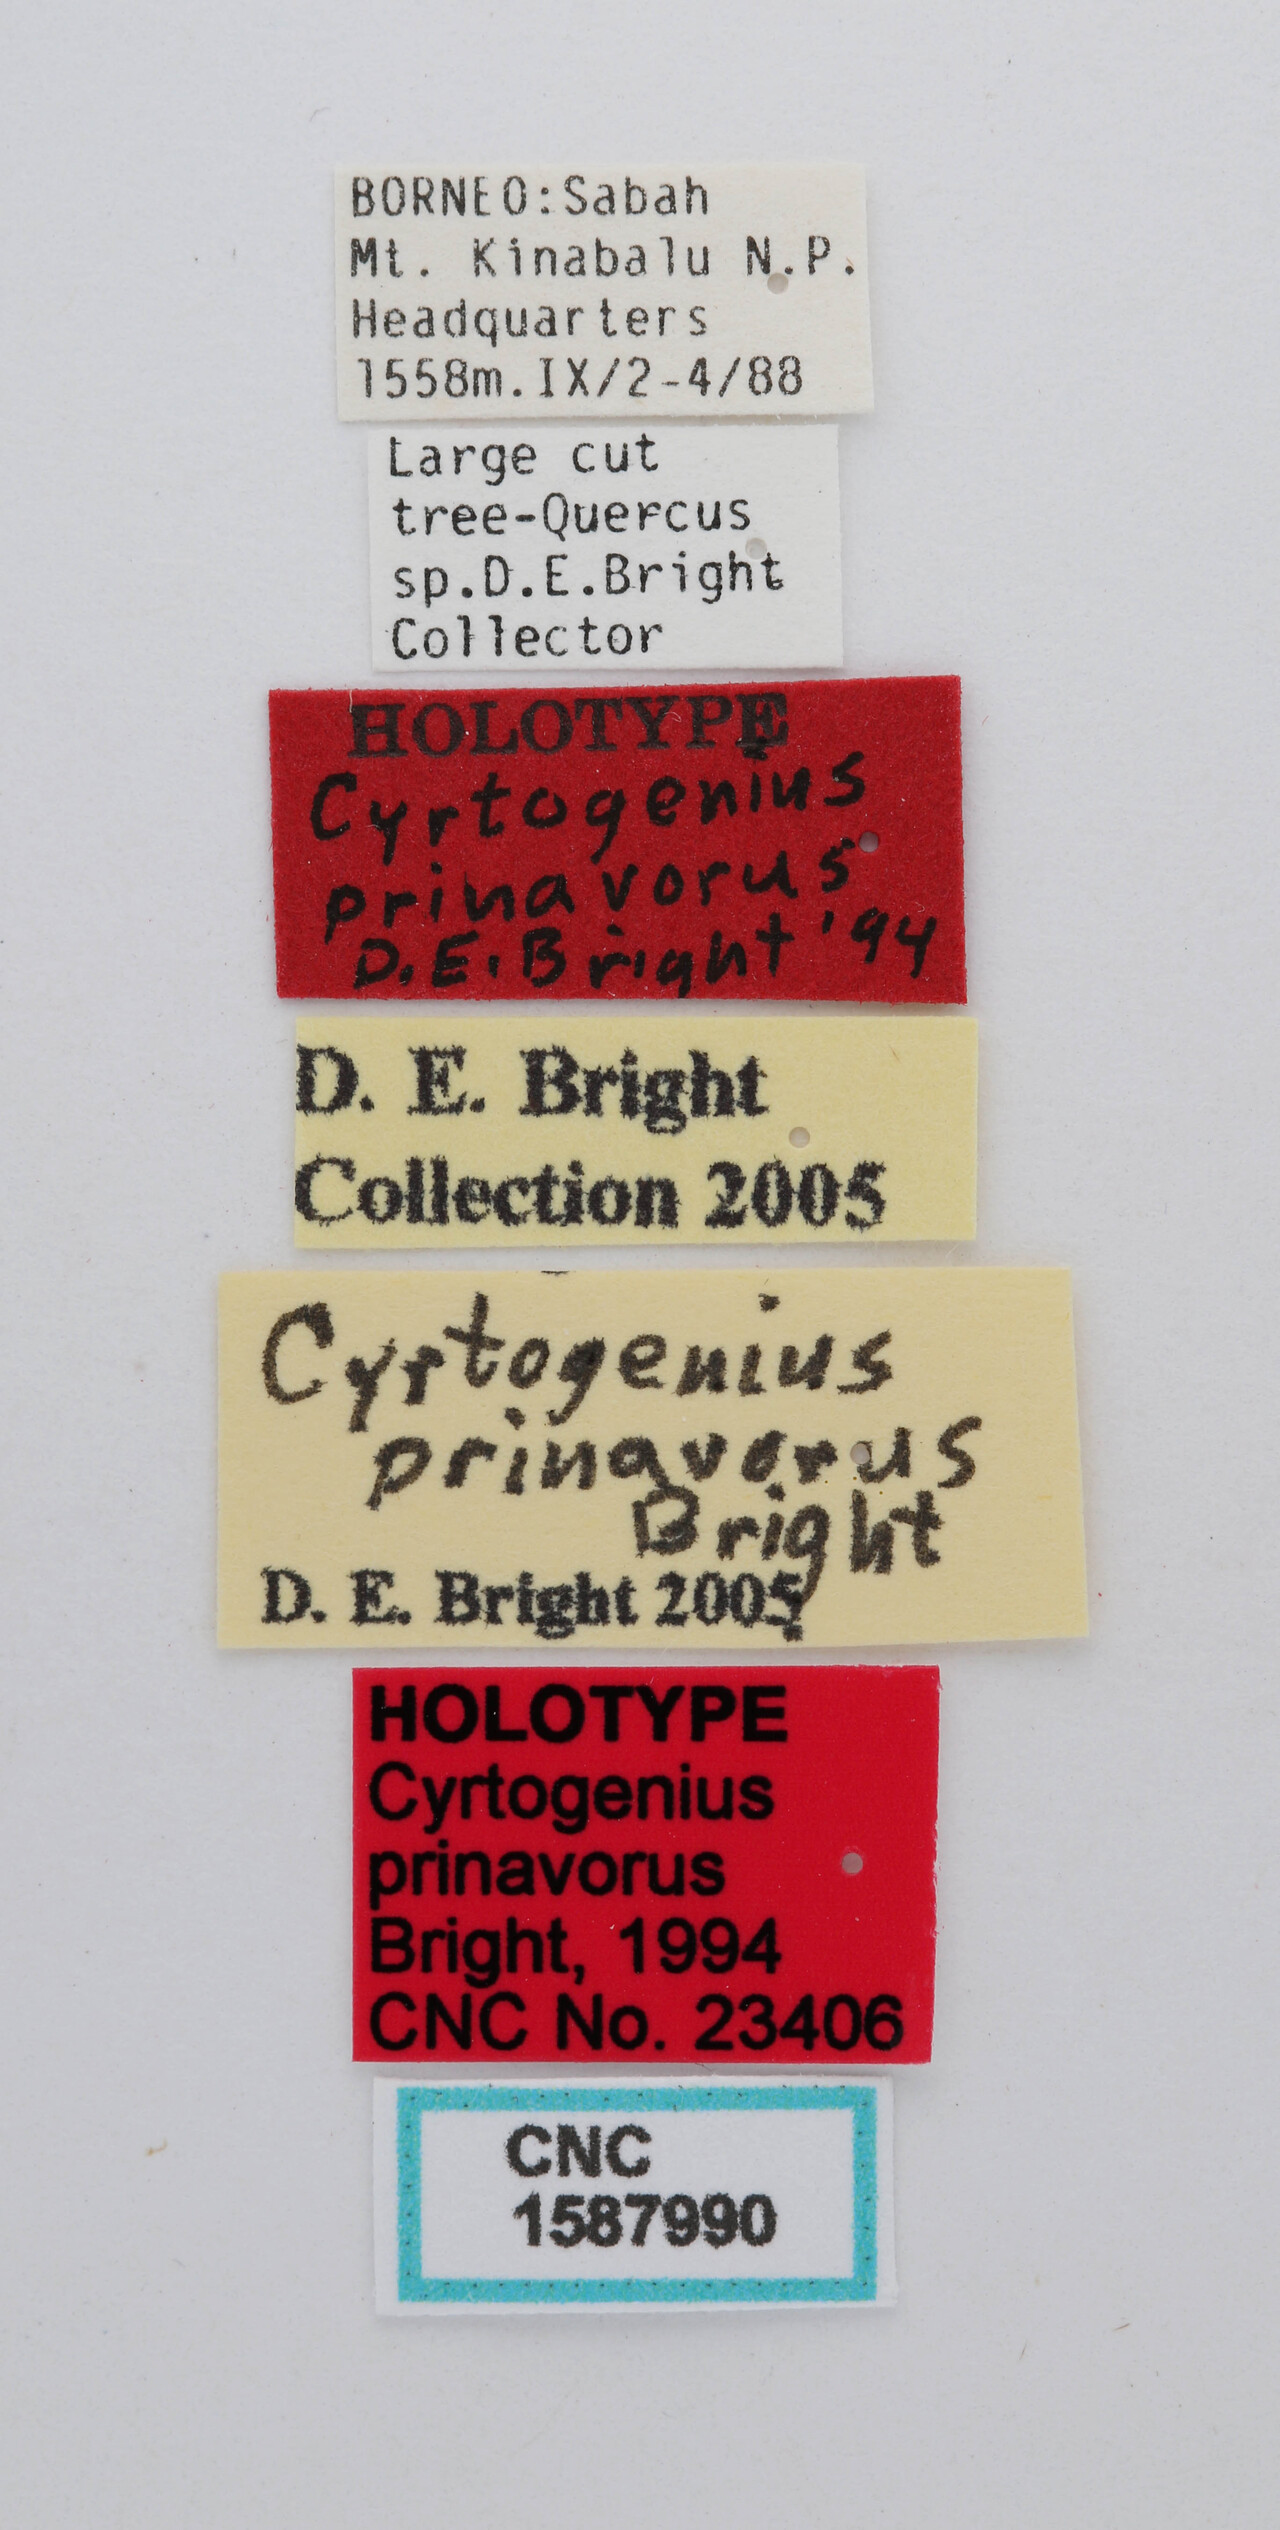 BORNEO:Sabah
Mt. Kinabalu N.P.
Headquarters
1558m.IX/2-4/88
Large cut
tree-Quercus
sp.D.E.Bright
Collector
HOLOTYPE
Cyrtogenius
prinavorus
D.E.Bright '94
D. E. Bright
Collection 2005
Cyrtogenius
prinavorus
Bright
D. E. Bright 2005
HOLOTYPE
Cyrtogenius
prinavorus
Bright, 1994
CNC No. 23406
CNC
1587990